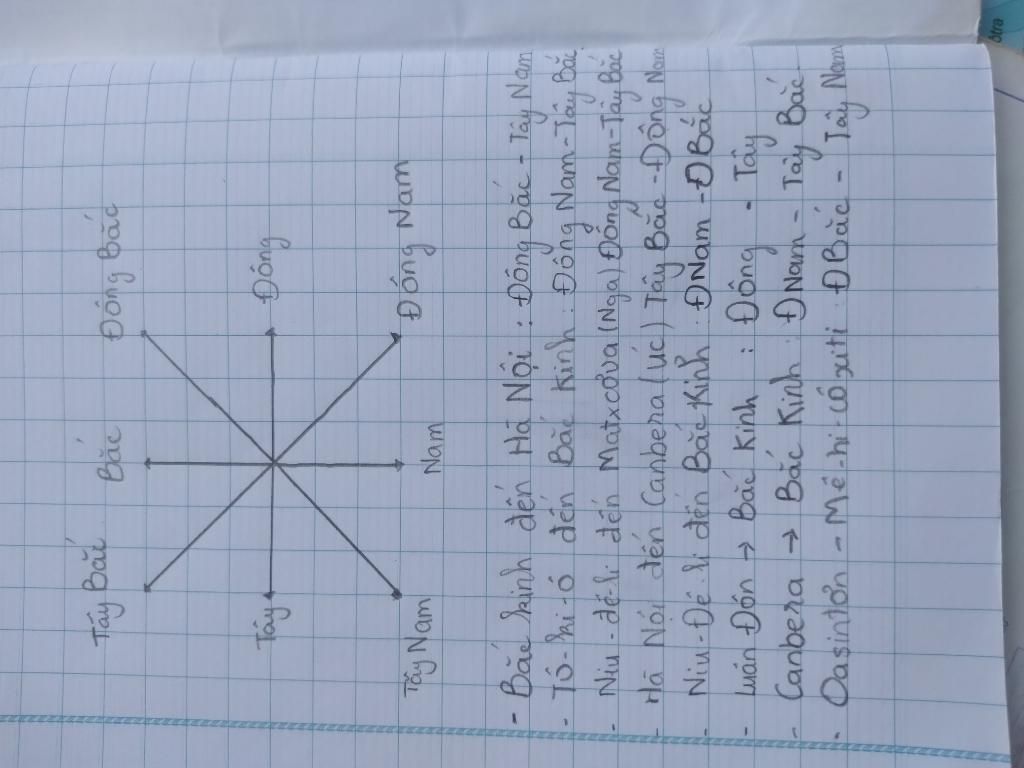 Tây Bắc Bắc Đông Bắc
Tây Đông
Tây Nam Nam Đông Nam
- Bắc kinh đến Hà Nội : Đông Bắc - Tây Nam
- Tô-ki-ô đến Bắc Kinh : Đông Nam-Tây Bắc
- Niu-đê-li đến Matxcơva (Nga) Đông Nam-Tây Bắc
- Hà Nội đến Canbera (úc) Tây Bắc - Đông Nam
- Niu-Đê-li đến Bắc Kinh : ĐNam - ĐBắc
- Luân Đôn → Bắc Kinh : Đông - Tây
- Canbera → Bắc Kinh : ĐNam - Tây Bắc
- Oasintơn → Mê-hi-cô xiti : ĐBắc - Tây Nam